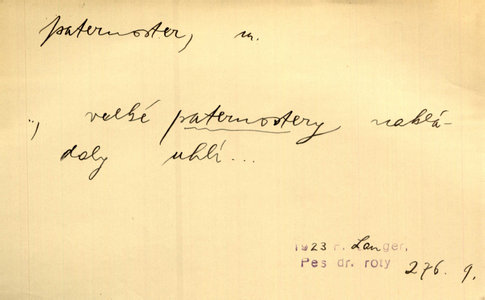 paternoster, m.
„ velké paternostery naklá-
daly uhlí...
1923 F. Langer,
Pes dr. roty 276. 9.